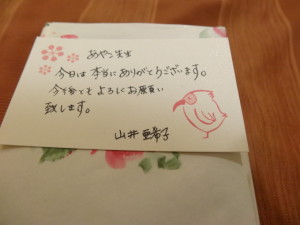 あやつ先生
今日は本当にありがとうございます。
今後ともよろしくお願い
致します。
山井 亜希子